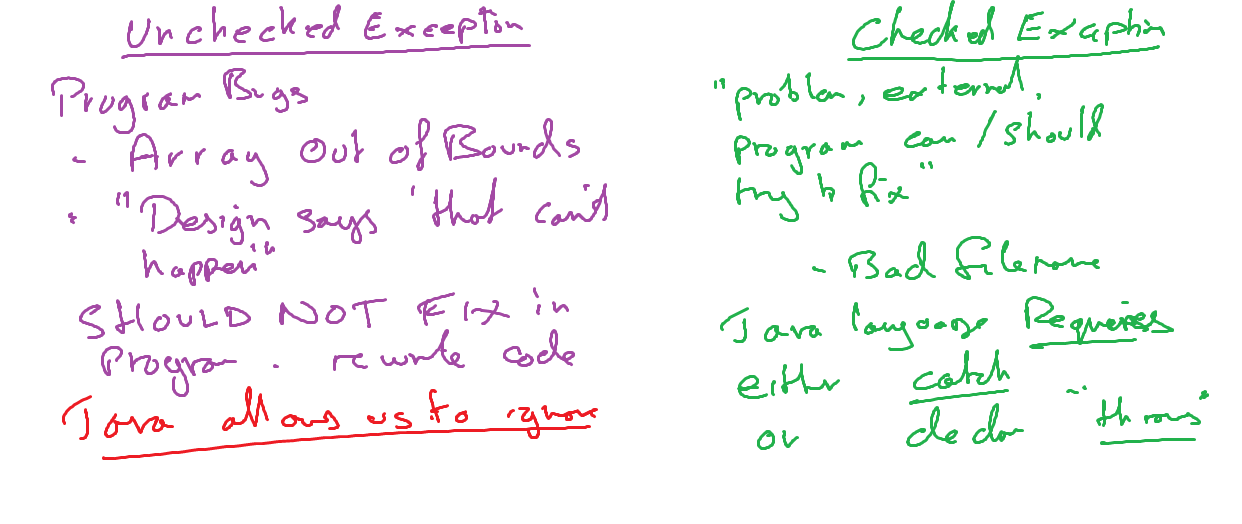 Unchecked Exception
Program Bugs
- Array Out of Bounds
- "Design says 'that can't
happen'"
SHOULD NOT FIX in
program. rewrite code
Java allows us to ignore
Checked Exception
"problem, external,
program can/should
try to fix"
- Bad filename
Java language Requires
either catch
or declare "throws"